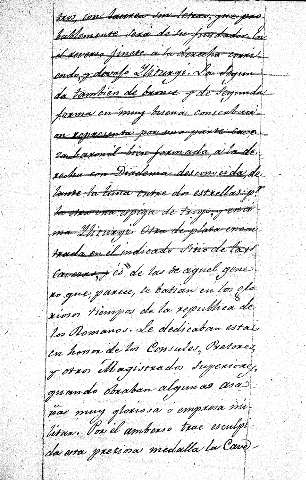 tros, con laurea sin letras, que pro
bablemente será de su fundador. En
el reverso ginete a la derecha corri
endo, y devajo Iliturgi. La segun
da tambien de bronce y de segunda
forma en muy buena conservaci
on representa por una parte cave
za varonil bien formada, a la de
recha con Diadema desconocida, de
lante la luna entre dos estrellas: p.r
la otra una espiga de trigo, y enci
ma Iliturgi. Otra de plata encon
trada en el indicado Sitio de las
es de las de aquel gene
ro que, parece, se batian en los glo
riosos tiempos de la republica de
los Romanos. Se dedicaban estas
en honor de los Consules, Pretores
y otros Magistrados Superiores,
quando obraban algunas aza
ñas muy gloriosa o empresa mi
litar. Por el amberso trae esculpi
da esta preziosa medalla la Cave-